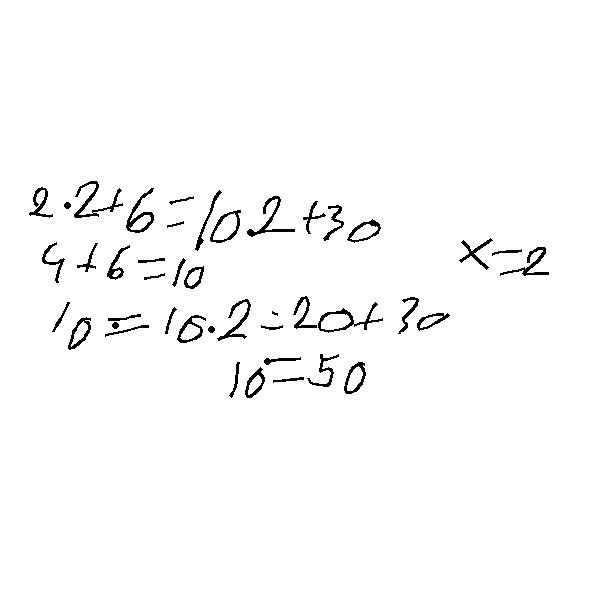 2·2+6=10.2+30
4+6=10
x=2
10=10.2=20+30
10=50